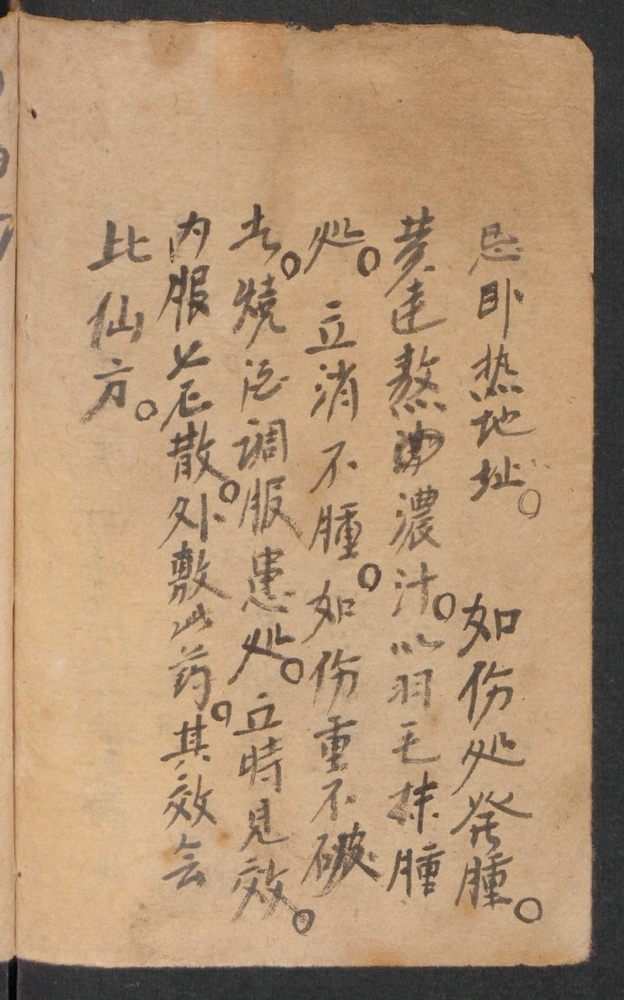 忌卧热地址。 如伤处發腫。
黄連熬濃汁。以羽毛抹腫
处。立消不腫。如伤重不破
者。燒酒調服患处。立時見效。
内服七厘散。外敷此药。其效会
比仙方。